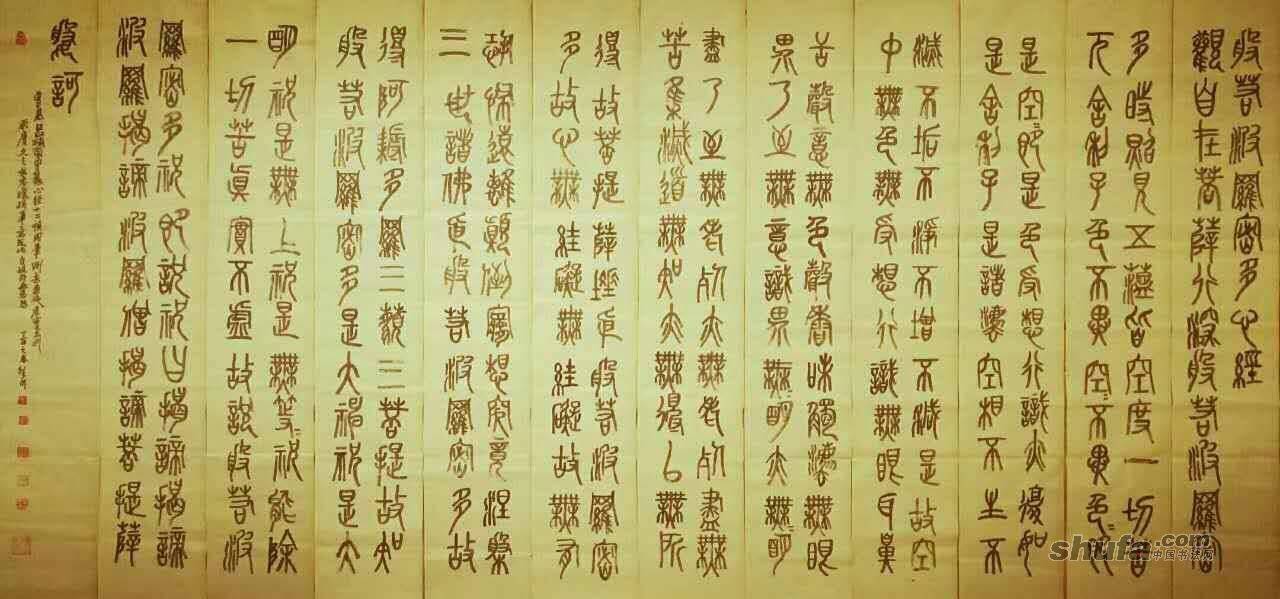 般若波羅密多心經
觀自在菩薩行深般若波羅密
多時照見五蘊皆空度一切苦
厄舍利子色不異空〻不異色〻即
是空即是色受想行識亦復如
是舍利子是諸法空相不生不
滅不垢不淨不增不減是故空
中無色無受想行識無眼耳鼻
舌身意無色聲香味觸法無眼
界乃至無意識界無明亦無〻明
盡乃至無老死亦無老死盡無
苦集滅道無知亦無得以無所
得故菩提薩埵依般若波羅密
多故心無罣礙無罣礙故無有
恐怖遠離顛倒夢想究竟涅槃
三世諸佛依般若波羅密多故
得阿耨多羅三藐三菩提故知
般若波羅密多是大神祝是大
明祝是無上祝是無等〻祝能除
一切苦真實不虛故說般若波
羅密多祝即說祝曰揭諦揭諦
波羅揭諦波羅僧揭諦菩提薩
婆訶
shufa.com
中国书法网